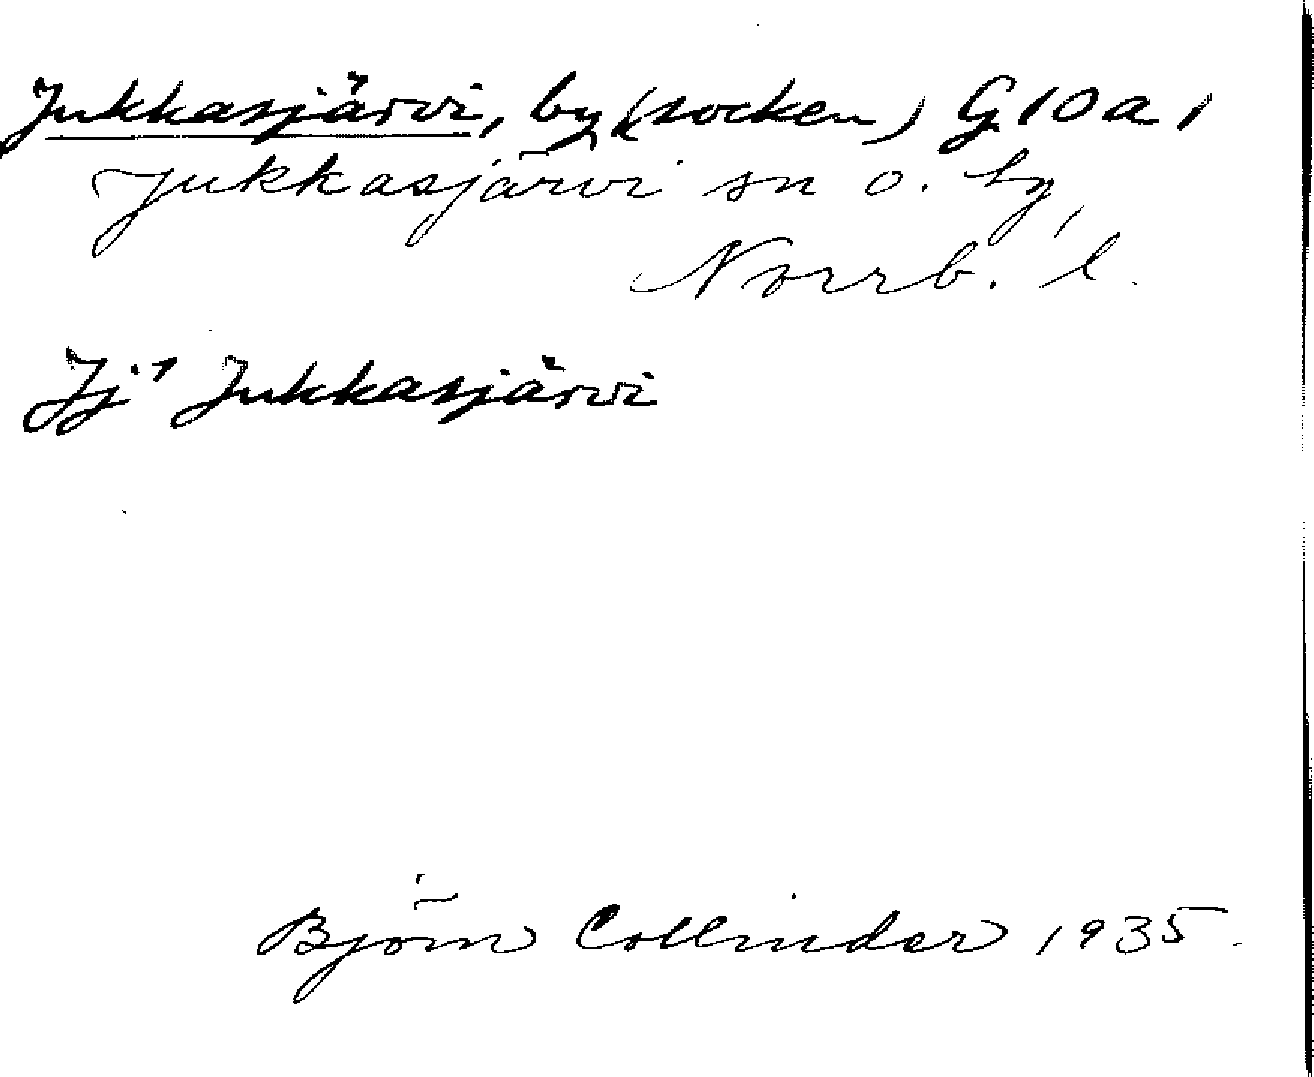 Jukkasjärvi, by (socken) G10a,
Jukkasjärvi sn o. by,
Norrb. l.
Jj¹ Jukkasjärvi
Björn Collinder 1935.